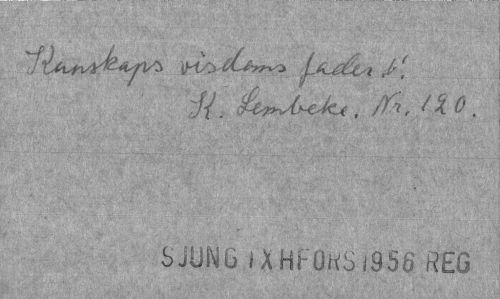 Kunskaps visdoms fader b!
K. Lembcke. Nr. 120.
SJUNG IX HFORS 1956 REG